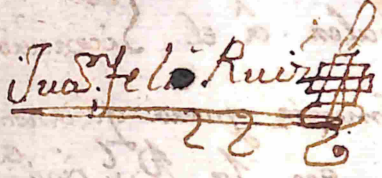 Juan, Feli Ruiz